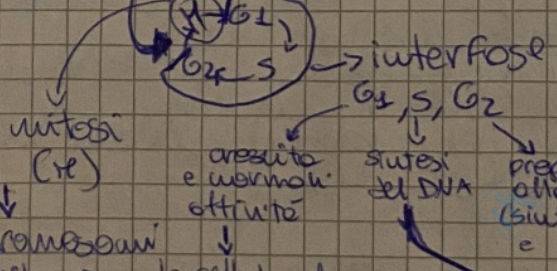 M G1
G2 S → interfase
G1, S, G2
mitosi
(re)
crescita
e normali
attività
sintesi
del DNA